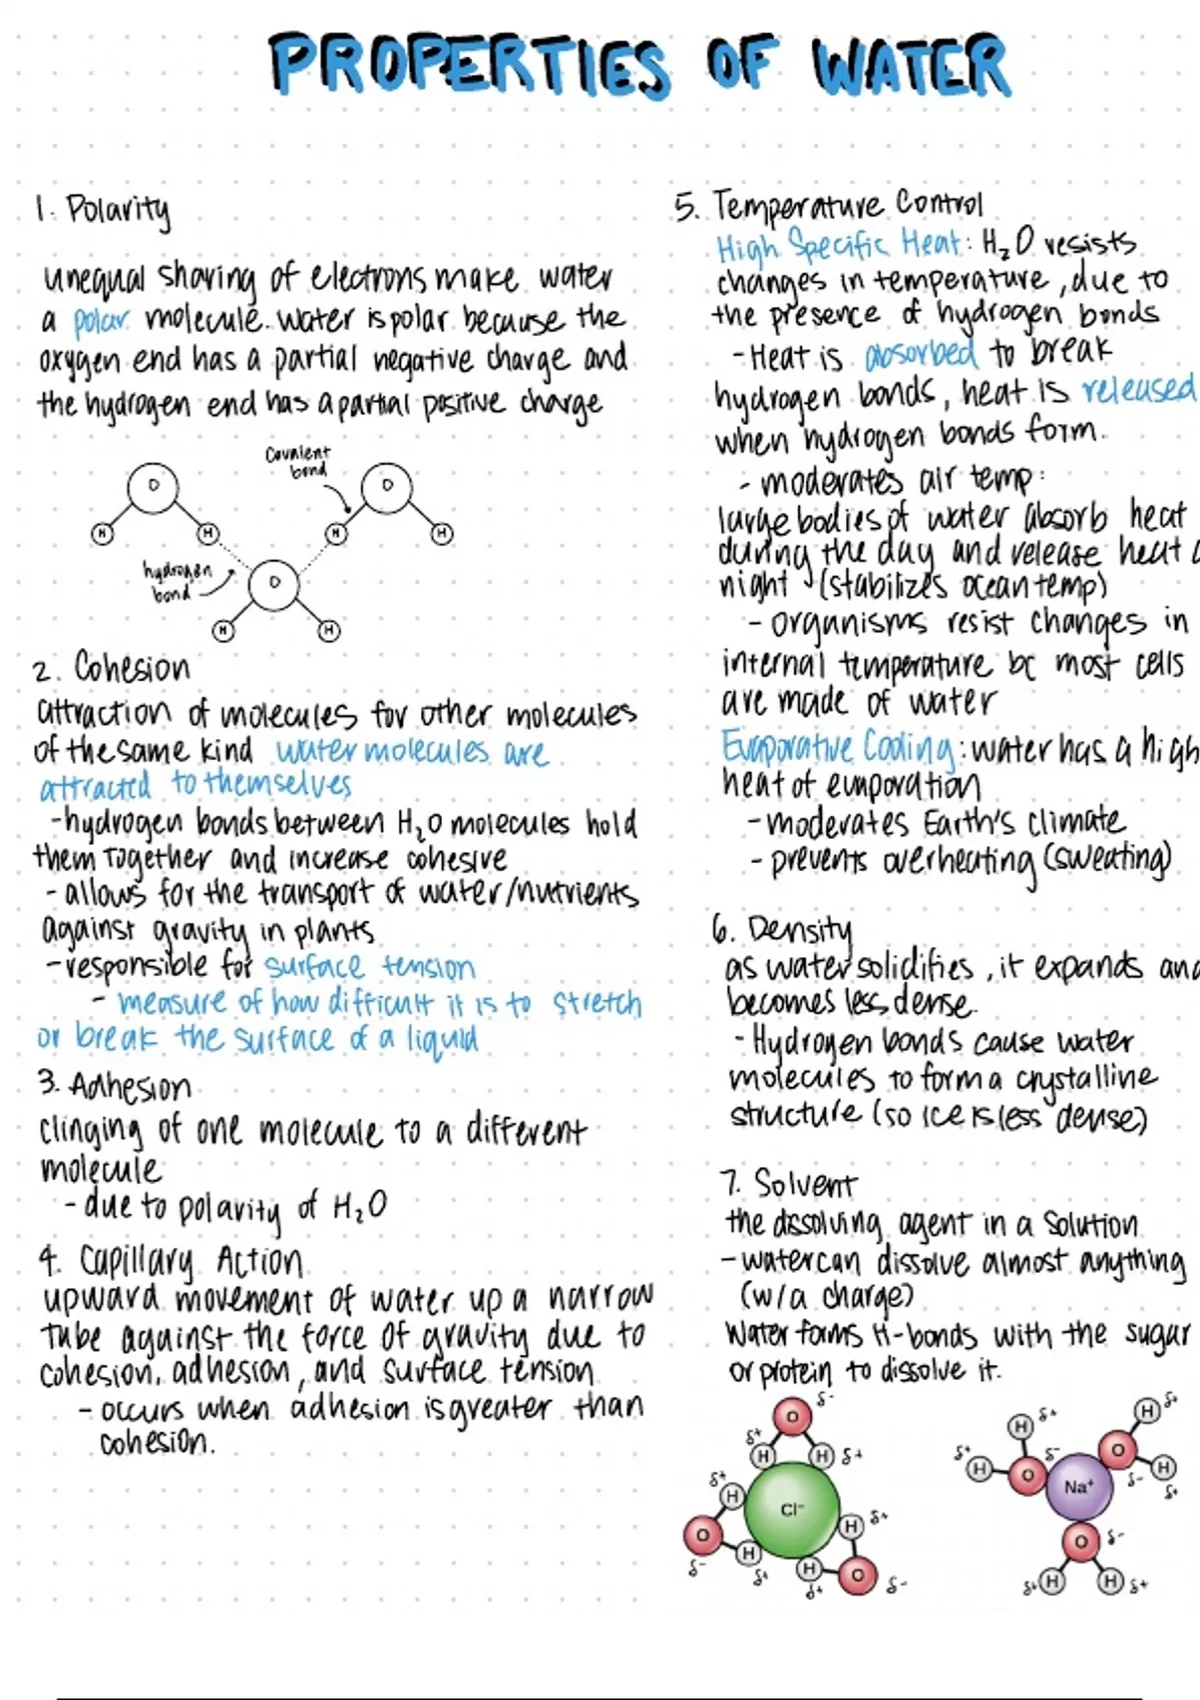 PROPERTIES OF WATER
1. Polarity
unequal sharing of electrons make water
a polar molecule. Water is polar because the
oxygen end has a partial negative charge and
the hydrogen end has a partial positive charge
Covalent
bond
O
O
H
H
H
H
hydrogen
bond
O
H
H
2. Cohesion
attraction of molecules for other molecules
of the same kind water molecules are
attracted to themselves
-hydrogen bonds between H₂O molecules hold
them together and increase cohesive
- allows for the transport of water/nutrients
against gravity in plants
-responsible for surface tension
- measure of how difficult it is to stretch
or break the surface of a liquid
3. Adhesion
clinging of one molecule to a different
molecule
- due to polarity of H₂O
4. Capillary Action
upward movement of water up a narrow
tube against the force of gravity due to
cohesion, adhesion, and surface tension
- occurs when adhesion is greater than
cohesion.
5. Temperature Control
High Specific Heat: H₂O resists
changes in temperature, due to
the presence of hydrogen bonds
-Heat is absorbed to break
hydrogen bonds, heat is released
when hydrogen bonds form.
- moderates air temp:
large bodies of water absorb heat
during the day and release heat
night (stabilizes ocean temp)
- organisms resist changes in
internal temperature bc most cells
are made of water
Evaporative Cooling: water has a high
heat of evaporation
-moderates Earth's climate
- prevents overheating (sweating)
6. Density
as water solidifies, it expands and
becomes less dense.
- Hydrogen bonds cause water
molecules to form a crystalline
structure (so ice is less dense)
7. Solvent
the dissolving agent in a solution
- water can dissolve almost anything
(w/a charge)
Water forms H-bonds with the sugar
or protein to dissolve it.
δ-
O
δ+
H
H
δ+
δ+
H
Cl⁻
O
H
δ+
H
δ-
δ+
H
O
δ+
δ-
H
δ+
H
δ+
δ+
H
O
δ-
O
H
Na⁺
δ-
δ+
O
δ-
δ+
H
H
δ+